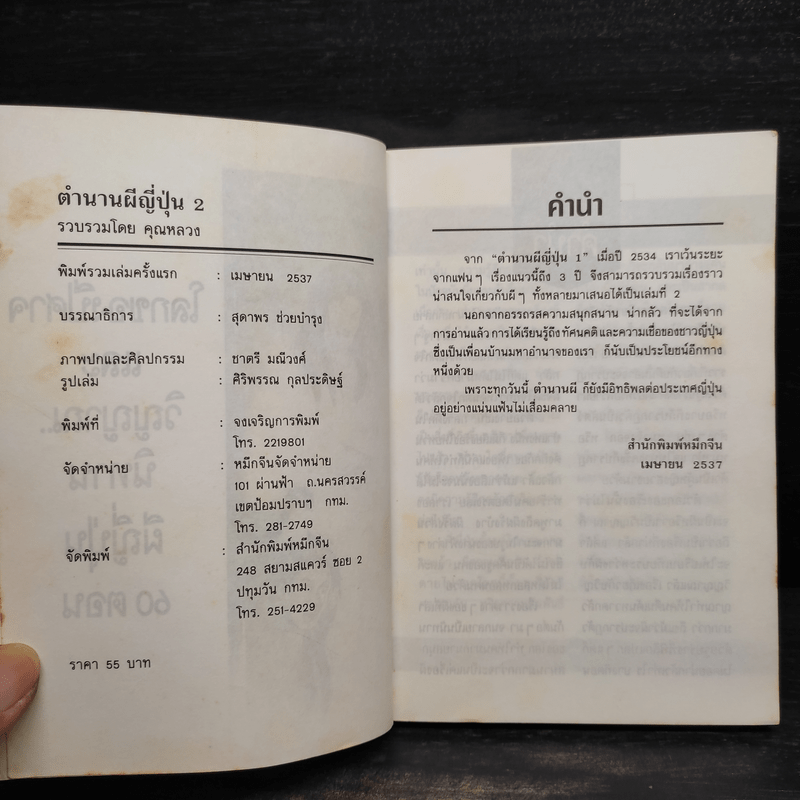 ตำนานผีญี่ปุ่น 2
รวบรวมโดย คุณหลวง
พิมพ์รวมเล่มครั้งแรก : เมษายน 2537
บรรณาธิการ : สุดาพร ช่วยบำรุง
ภาพปกและศิลปกรรม : ชาตรี มณีวงศ์
รูปเล่ม : ศิริพรรณ กุลประดิษฐ์
พิมพ์ที่ : จงเจริญการพิมพ์
โทร. 2219801
จัดจำหน่าย : หมึกจีนจัดจำหน่าย
101 ผ่านฟ้า ถ.นครสวรรค์
เขตป้อมปราบฯ กทม.
โทร. 281-2749
จัดพิมพ์ : สำนักพิมพ์หมึกจีน
248 สยามสแควร์ ซอย 2
ปทุมวัน กทม.
โทร. 251-4229
ราคา 55 บาท
คำนำ
จาก "ตำนานผีญี่ปุ่น 1" เมื่อปี 2534 เราเว้นระยะ
จากแฟนๆ เรื่องแนวนี้ถึง 3 ปี จึงสามารถรวบรวมเรื่องราว
น่าสนใจเกี่ยวกับผีๆ ทั้งหลายมาเสนอได้เป็นเล่มที่ 2
นอกจากอรรถรสความสนุกสนาน น่ากลัว ที่จะได้จาก
การอ่านแล้ว การได้เรียนรู้ถึงทัศนคติและความเชื่อของชาวญี่ปุ่น
ซึ่งเป็นเพื่อนบ้านมหาอำนาจของเรา ก็นับเป็นประโยชน์อีกทาง
หนึ่งด้วย
เพราะทุกวันนี้ ตำนานผี ก็ยังมีอิทธิพลต่อประเทศญี่ปุ่น
อยู่อย่างแน่นแฟ้นไม่เสื่อมคลาย
สำนักพิมพ์หมึกจีน
เมษายน 2537